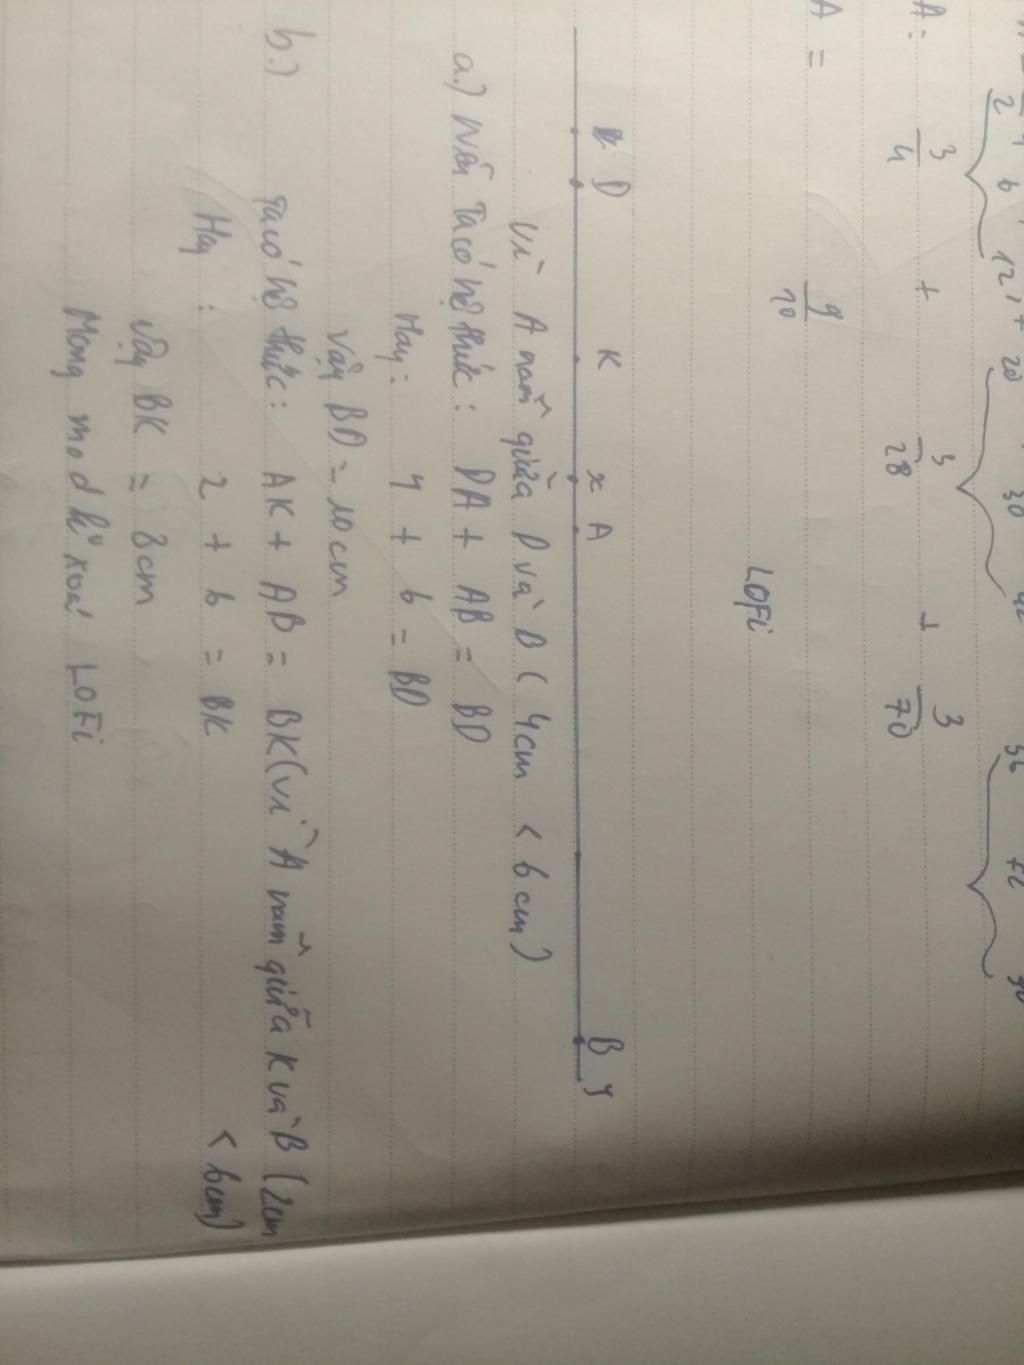 2 6 12, + 20 30 42 56 72 90
A: 3/4 + 3/28 + 3/70
A = 9/10
LOFi
D K x A B y
Vì A nằm giữa D và B ( 4cm < 6cm)
a.) Nên Ta có hệ thức : DA + AB = BD
Hay : 4 + 6 = BD
Vậy BD = 10cm
b.) Ta có hệ thức : AK + AB = BK (vì A nằm giữa K và B (2cm
< 6cm)
Hay : 2 + 6 = BK
Vậy BK = 8cm
Mong mod k° xoá LOFi